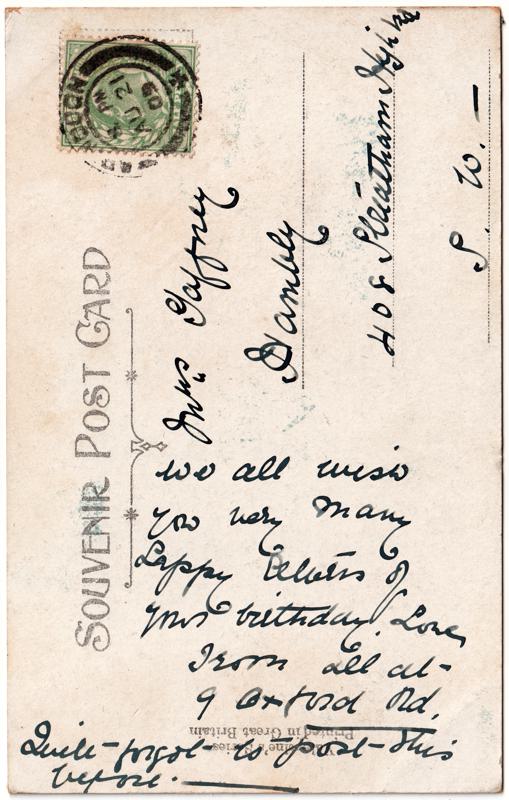 SOUVENIR POST CARD
Mrs Gaffney
Hambly
408 Streatham High Rd
S. W.
We all wish
you very many
happy returns of
your birthday. Love
From all at
9 Oxford Rd.
Quite forgot to post this
before.
Series
Printed in Great Britain